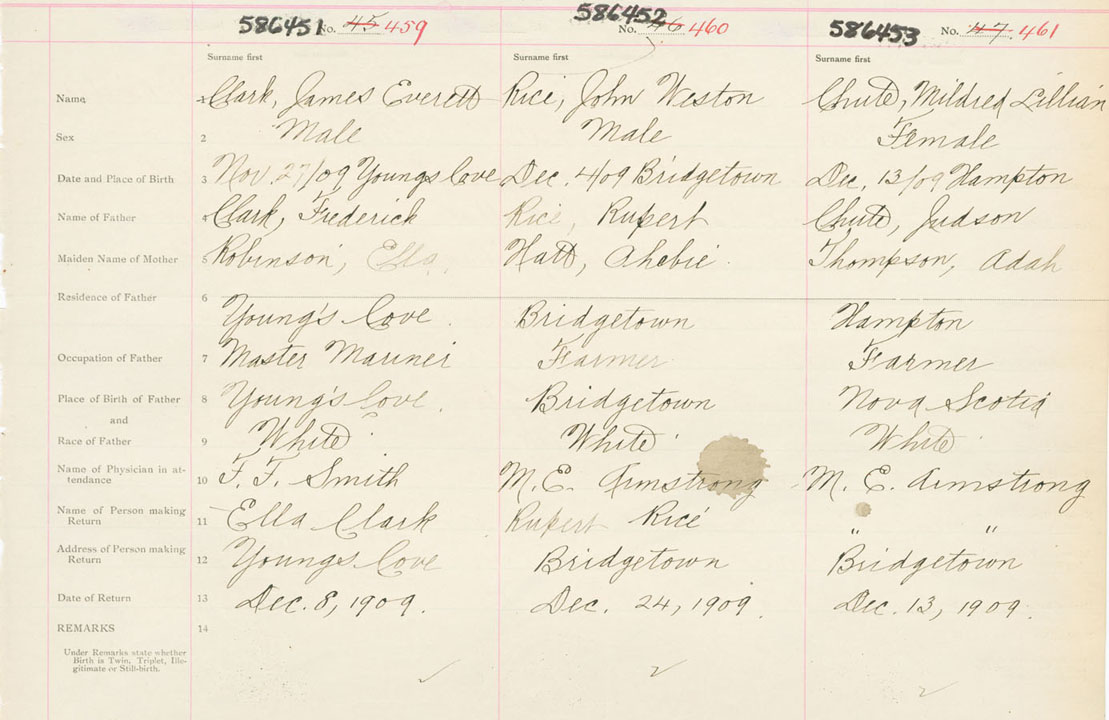 586451 No. 45 459 586452 No. 46 460 586453 No. 47 461
Surname first Surname first Surname first
Name 1 Clark, James Everett Rice, John Weston Chute, Mildred Lillian
Sex 2 Male Male Female
Date and Place of Birth 3 Nov. 27/09 Youngs Cove Dec. 4/09 Bridgetown Dec. 13/09 Hampton
Name of Father 4 Clark, Frederick Rice, Rupert Chute, Judson
Maiden Name of Mother 5 Robinson, Ella Hatt, Thompson, Adah
Residence of Father 6
Young's Cove. Bridgetown Hampton
Occupation of Father 7 Master Mariner Farmer Farmer
Place of Birth of Father 8 Young's Cove. Bridgetown Nova Scotia
and
Race of Father 9 White White White
Name of Physician in at-
tendance 10 F. F. Smith M. E. Armstrong M. E. Armstrong
Name of Person making
Return 11 Ella Clark Rupert Rice " "
Address of Person making
Return 12 Youngs Cove Bridgetown Bridgetown
Date of Return 13 Dec. 8, 1909. Dec. 24, 1909. Dec. 13, 1909.
REMARKS 14
Under Remarks state whether
Birth is Twin, Triplet, Ille-
gitimate or Still-birth.